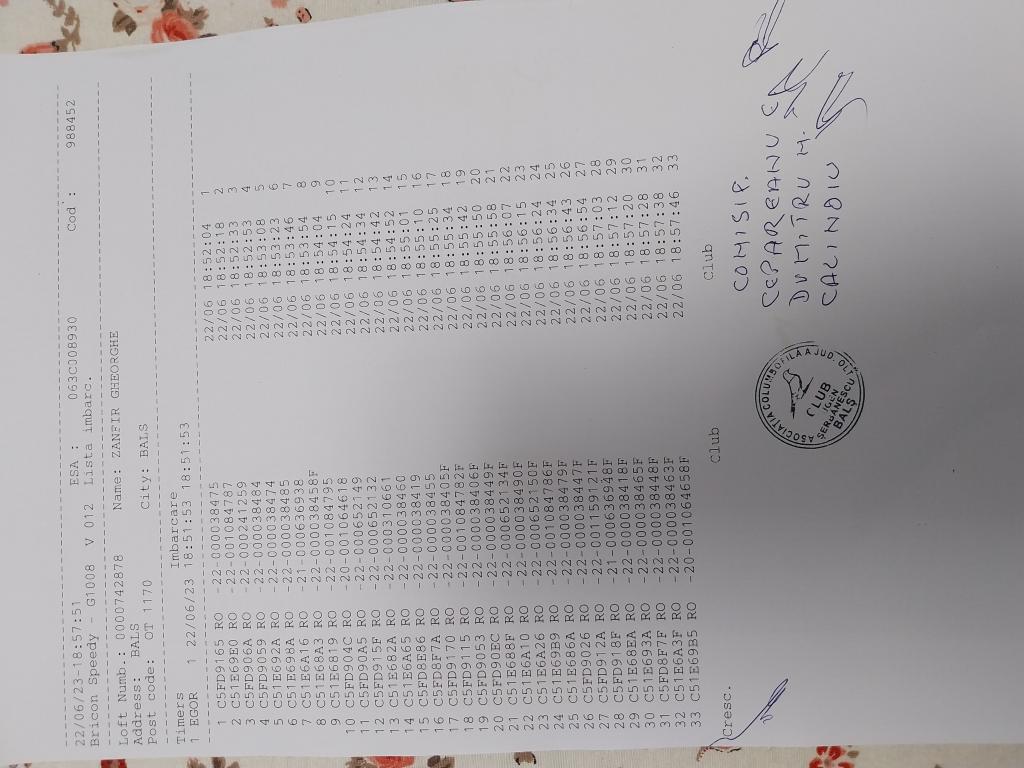 22/06/23-18:57:51 ESA : 063C008930 Cod : 988452
Bricon Speedy - G1008 V 012 Lista imbarc.
Loft Numb.: 0000742878 Name: ZANFIR GHEORGHE
Address: BALS
Post code: OT 1170 City: BALS
Timers Imbarcare
1 EGOR 1 22/06/23 18:51:53 18:51:53
1 C5FD9165 RO -22-000038475 22/06 18:52:04 1
2 C51E69E0 RO -22-001084787 22/06 18:52:18 2
3 C5FD906A RO -22-000241259 22/06 18:52:33 3
4 C5FD9059 RO -22-000038484 22/06 18:52:53 4
5 C51E692A RO -22-000038474 22/06 18:53:08 5
6 C51E698A RO -22-000038485 22/06 18:53:23 6
7 C51E6A16 RO -21-000636938 22/06 18:53:46 7
8 C51E68A3 RO -22-000038458F 22/06 18:53:54 8
9 C51E6819 RO -22-001084795 22/06 18:54:04 9
10 C5FD904C RO -20-001064618 22/06 18:54:15 10
11 C5FD90A5 RO -22-000652149 22/06 18:54:24 11
12 C5FD915F RO -22-000652132 22/06 18:54:34 12
13 C51E682A RO -22-000310661 22/06 18:54:42 13
14 C51E6A65 RO -22-000038460 22/06 18:54:52 14
15 C5FD8E86 RO -22-000038419 22/06 18:55:01 15
16 C5FD8F7A RO -22-000038455 22/06 18:55:10 16
17 C5FD9170 RO -22-000038405F 22/06 18:55:25 17
18 C5FD9115 RO -22-001084782F 22/06 18:55:34 18
19 C5FD9053 RO -22-000038406F 22/06 18:55:42 19
20 C5FD90EC RO -22-000038449F 22/06 18:55:50 20
21 C51E688F RO -22-000653134F 22/06 18:55:58 21
22 C51E6A10 RO -22-000038490F 22/06 18:56:07 22
23 C51E6A26 RO -22-000652150F 22/06 18:56:15 23
24 C51E69B9 RO -22-001084786F 22/06 18:56:24 24
25 C51E686A RO -22-000038479F 22/06 18:56:34 25
26 C5FD9026 RO -22-000038447F 22/06 18:56:43 26
27 C5FD912A RO -22-001159121F 22/06 18:56:54 27
28 C5FD918F RO -21-000636948F 22/06 18:57:03 28
29 C51E68EA RO -22-000038418F 22/06 18:57:12 29
30 C51E693A RO -22-000038465F 22/06 18:57:20 30
31 C5FD8F7F RO -22-000038448F 22/06 18:57:28 31
32 C51E6A3F RO -22-000038463F 22/06 18:57:38 32
33 C51E69B5 RO -20-001064658F 22/06 18:57:46 33
Cresc. Club Club
COMISIP.
CEPAREANU C
DUMITRU M.
CALINDIU
ASOCIATIA COLUMBOFILA A JUD. OLT
CLUB
ICCN
ȘERBĂNESCU
BALȘ